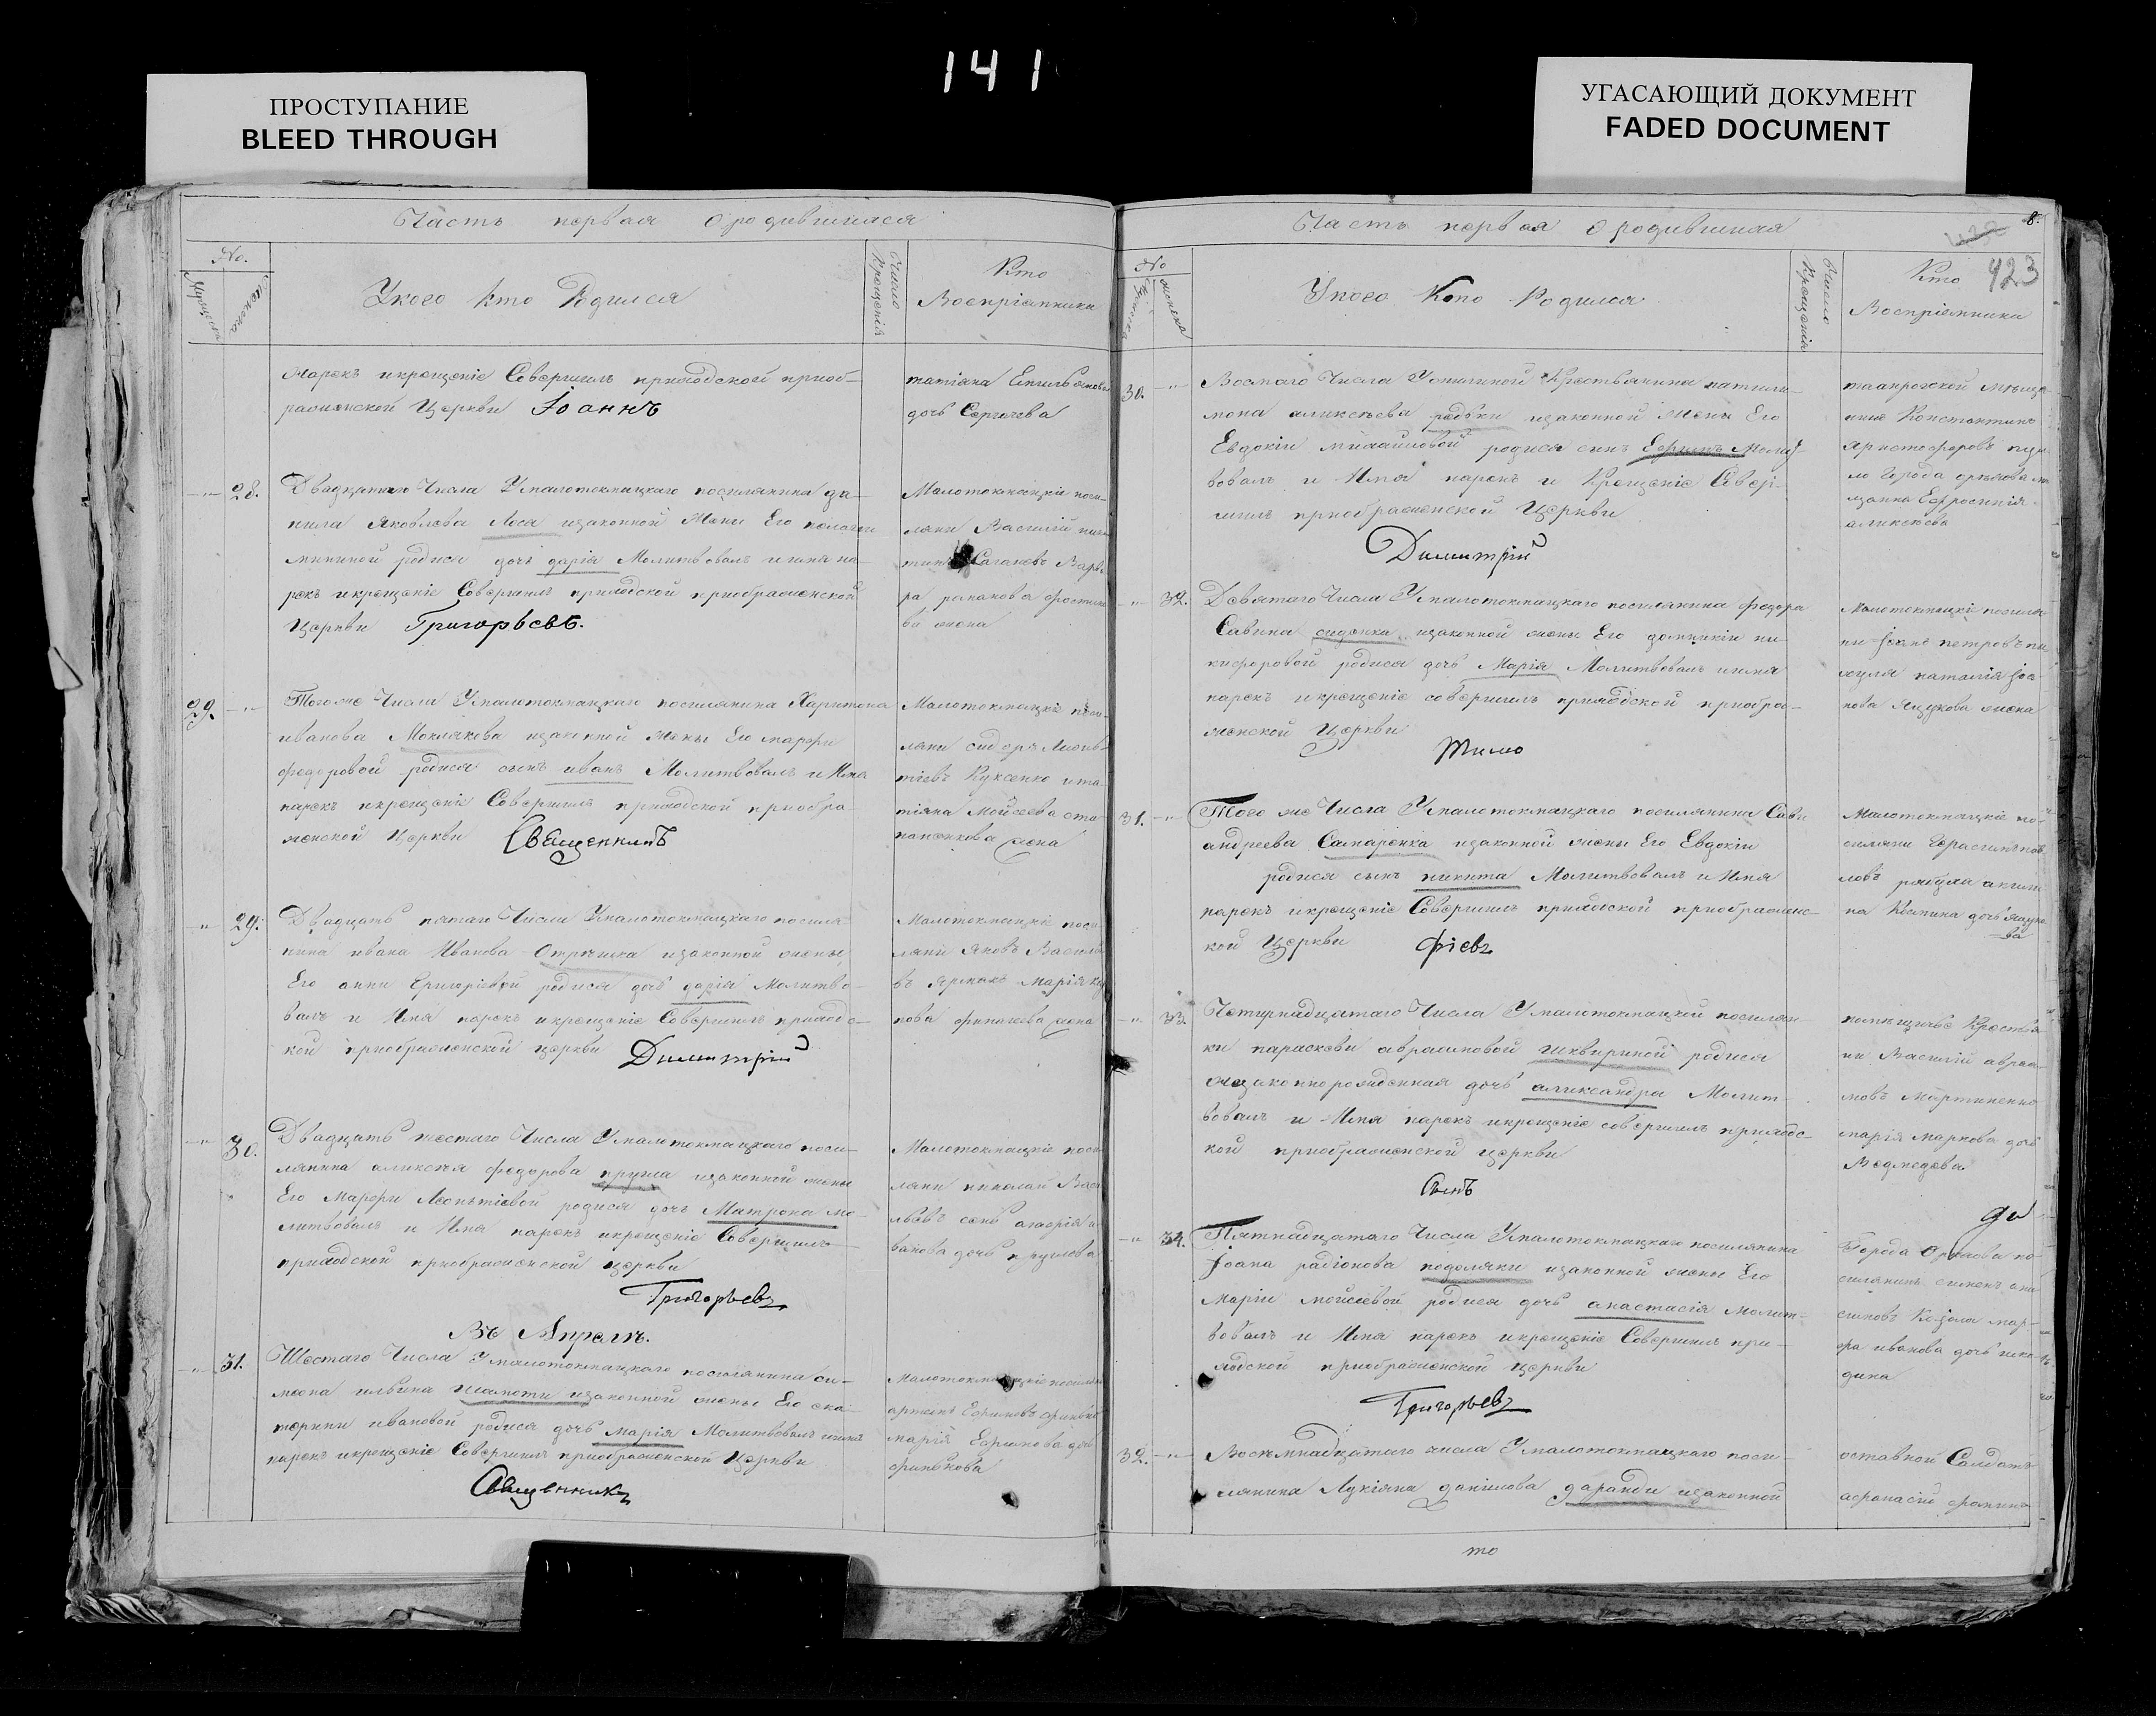 141
ПРОСТУПАНИЕ
BLEED THROUGH
УГАСАЮЩИЙ ДОКУМЕНТ
FADED DOCUMENT
Часть первая о родившихся
No.
Мущеска
Женска
Укого кто Родился
Число Крещенія
Кто Воспріемники
нарекъ икрещеніе Совершилъ приходской приоб-
раженской Церкви Іоаннъ
татіана
дочь Сергѣева
28. Двадцатаго Числа Умалотокмацкаго посилянина да-
нила Яковлева Лоса изаконной Жены Его пелагеи
мининой родися дочь дарія Молитвовалъ иимя на-
рекъ икрещеніе Совершилъ приходской приображенской
Церкви Григорьевъ.
Малотокмацкіе поси-
ляни Василій ники-
тинъ Сагановъ Варва-
ра романова
ва жена
29. Тогоже Числа Умалотокмацкаго посилянина Харитона
иванова Моклякова изаконной жены Его марфи
федоровой родися сынъ иванъ Молитвовалъ и Имя
нарекъ икрещеніе Совершилъ приходской приобра
женской Церкви Священникъ
Малотокмацкіе поси-
ляни сидоръ Леонь-
тіевъ Куксенко ита
тіяна Мойсеева сте
паненкова жена
29. Двадцать пятаго Числа Умалотокмацкаго посиля
нина ивана Иванова изаконной жены
Его анни Григоріевой родися дочь дарія Молитво-
валъ и Имя нарекъ икрещеніе Совершилъ приходс-
кой приображенской церкви Димитрій
Малотокмацкіе поси-
ляни Яковъ Василье
въ Марія
пова жена
30. Двадцать шестаго Числа Умалотокмацкаго поси-
лянина аликсѣя федорова пруша изаконной жены
Его Марфи Леонътіевой родися дочь Матрона мо-
литвовалъ и Имя нарекъ икрещеніе Совершилъ
приходской приображенской церкви
Григорьевъ
Малотокмацкіе поси
ляни николай Васи
льевъ агафія и
ванова дочь
Въ Апрелѣ.
31. Шестаго Числа Умалотокмацкаго посилянина си-
меона ильина шамоти изаконной жены Его ека-
терини ивановой родися дочь марія Молитвовалъ иимя
нарекъ икрещеніе Совершилъ приображенской Церкви
Священникъ
Малотокмацкіе посиляни
артемъ Ефимовъ
марія Ефимова дочь
финькова
Часть первая о родившихся
8.
423
No
женска
Укого Кто Родился
Число Крещенія
Кто Воспріемники
30. Восмаго Числа Крестьянина пантили-
мона аликсѣева редьки изаконной жены Его
Евдокіи михайловой родися синъ Ефимъ Молит
вовалъ и Имя нарекъ и Крещеніе Совер-
шилъ приображенской Церкви
Димитрій
таганрогской мѣща
нинъ Константинъ
Христофоровъ
ло Города орѣхова мѣ
щанка Ефросинія
аликсѣева
32. Девятаго Числа Умалотокмацкаго посилянина федора
Савина сидэнка изаконной жены Его домникіи ни-
кифоровой родися дочь Марія Молитвовалъ иимя
нарекъ икрещеніе совершилъ приходской приобра-
женской Церкви
Тимо
Малотокмацкіе посиля
ни Іоанъ петровъ пи
наталія Іоа
нова Яцукова жена
31. Того же Числа Умалотокмацкаго посилянина Сави
андреева Самаренка изаконной жены Его Евдокіи
родися сынъ никита Молитвовалъ и Имя
нарекъ икрещеніе Совершилъ приходской приображенс-
кой Церкви фіевъ
Малотокмацкіе по-
силяни Герасимъ пав
ловъ рябуха акили
на Кузмина дочь яцуко
ва
33. Четирнадцатаго Числа Умалотокмацкой посилян-
ки параскеви авраамовой шквириной родися
незаконнорожденная дочь аликсандра Молит-
вовалъ и Имя нарекъ икрещеніе совершилъ приходс-
кой приображенской церкви
Синъ
помѣщичье Крестья
ни Василій авраа-
мовъ Мартиненко
марія маркова дочь
Ведмедева
34. Пятнадцатаго Числа Умалотокмацкаго посилянина
Іоана радіонова подоляки изаконной жены Его
Маріи мойсеевой родися дочь анастасія молит-
вовалъ и Имя нарекъ икрещеніе Совершилъ при-
ходской приображенской Церкви
Григорьевъ
Города Орѣхова по-
силянинъ симонъ они
симовъ Козола мар-
фа иванова дочь
дина
32. Восѣмнадцатаго числа Умалотокмацкаго поси-
лянина Лукіяна данілова даранди изаконной
оставной Салдатъ
афанасій фомина
то